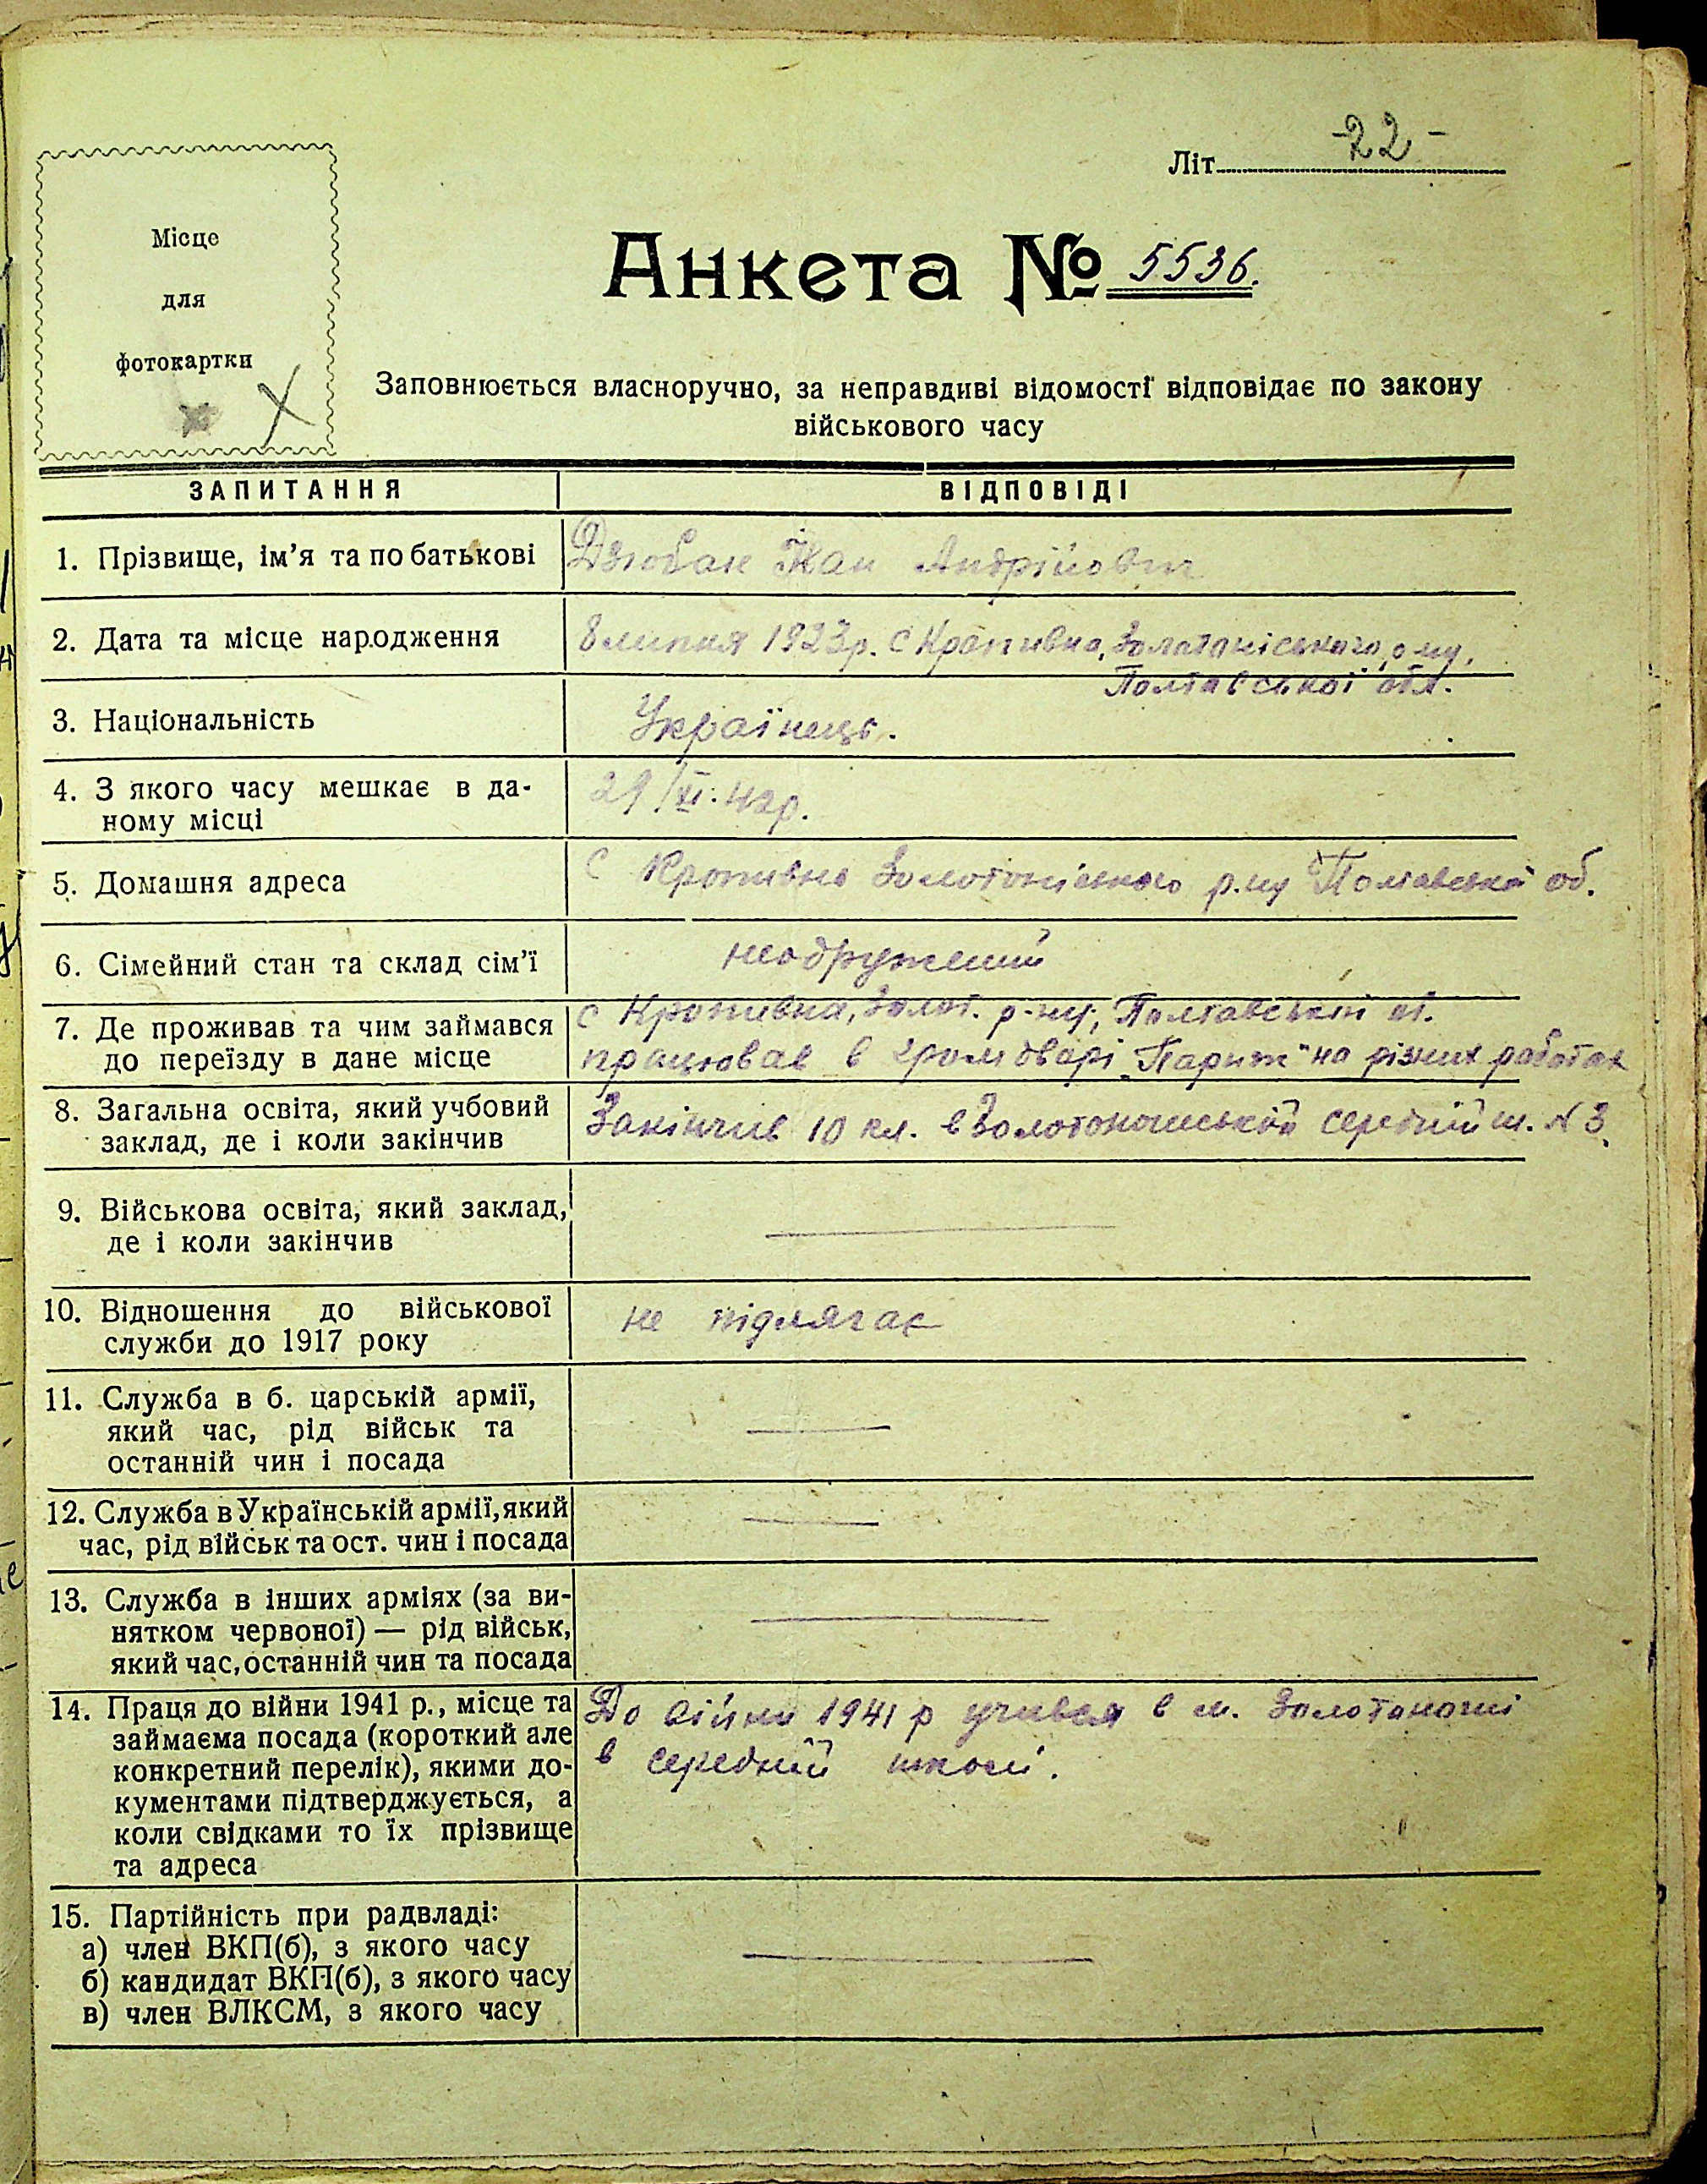 Літ. -22-
Місце
для
фотокартки
Анкета № 5536.
Заповнюється власноручно, за неправдиві відомості відповідає по закону
військового часу
ЗАПИТАННЯ ВІДПОВІДІ
1. Прізвище, ім'я та по батькові Дзюбан Іван Андрійович
2. Дата та місце народження 8 липня 1923р. с Кропивна, Золотоніського р-ну,
Полтавської обл.
3. Національність Українець.
4. З якого часу мешкає в да-
ному місці 29/XI. 42р.
5. Домашня адреса с Кропивна Золотоніського р.ну Полтавської об.
6. Сімейний стан та склад сім'ї неодружений
7. Де проживав та чим займався с Кропивна, Золот. р-ну, Полтавській об.
до переїзду в дане місце працював в громдварі „Париж" на різних работах
8. Загальна освіта, який учбовий
заклад, де і коли закінчив Закінчив 10 кл. в Золотоношській середній ш. N 3.
9. Військова освіта, який заклад,
де і коли закінчив
10. Відношення до військової
служби до 1917 року не підлягає
11. Служба в б. царській армії,
який час, рід військ та
останній чин і посада
12. Служба в Українській армії, який
час, рід військ та ост. чин і посада
13. Служба в інших арміях (за ви-
нятком червоної) — рід військ,
який час, останній чин та посада
14. Праця до війни 1941 р., місце та До війни 1941 р учився в м. Золотоноші
займаєма посада (короткий але в середній школі.
конкретний перелік), якими до-
кументами підтверджується, а
коли свідками то їх прізвище
та адреса
15. Партійність при радвладі:
а) член ВКП(б), з якого часу
б) кандидат ВКП(б), з якого часу
в) член ВЛКСМ, з якого часу